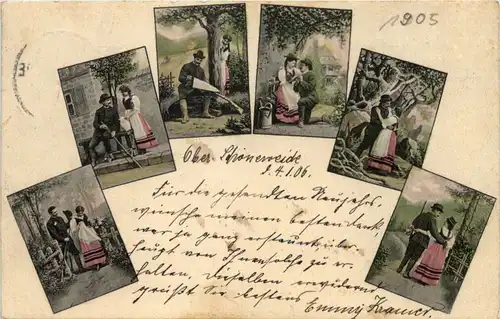 1905
Ober-Schöneweide
d. 4.1.06.
Für die gesendten Neujahrs
wünsche meinen besten Dank
war ja ganz erstaunt über
haupt von Ihnen solche zu er
halten, dieselben erwidernd
grüßt Sie bestens
Emmy Kramer.